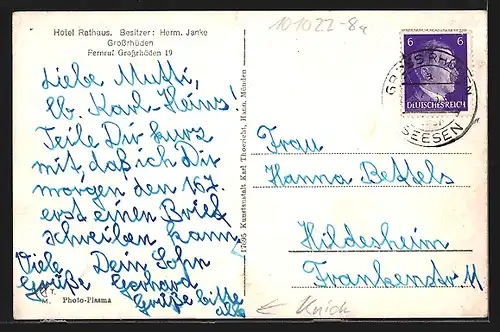 Hotel Rathaus. Besitzer: Herm. Janke
Großrhüden
Fernruf Großrhüden 19
101022-8a
Liebe Mutti,
lb. Karl-Heinz!
Teile Dir kurz
mit, daß ich Dir
morgen den 16.7.
erst einen Brief
schreiben kann.
Viele Dein Sohn
Grüße Gerhard
Grüße bitte
alle
Photo-Plasma
17695 Kunstanstalt Karl Thoericht, Hann. Münden
6 6
DEUTSCHES REICH
SEESEN
Frau
Hanna Bettels
Hildesheim
Frankenstr 11
← Knick